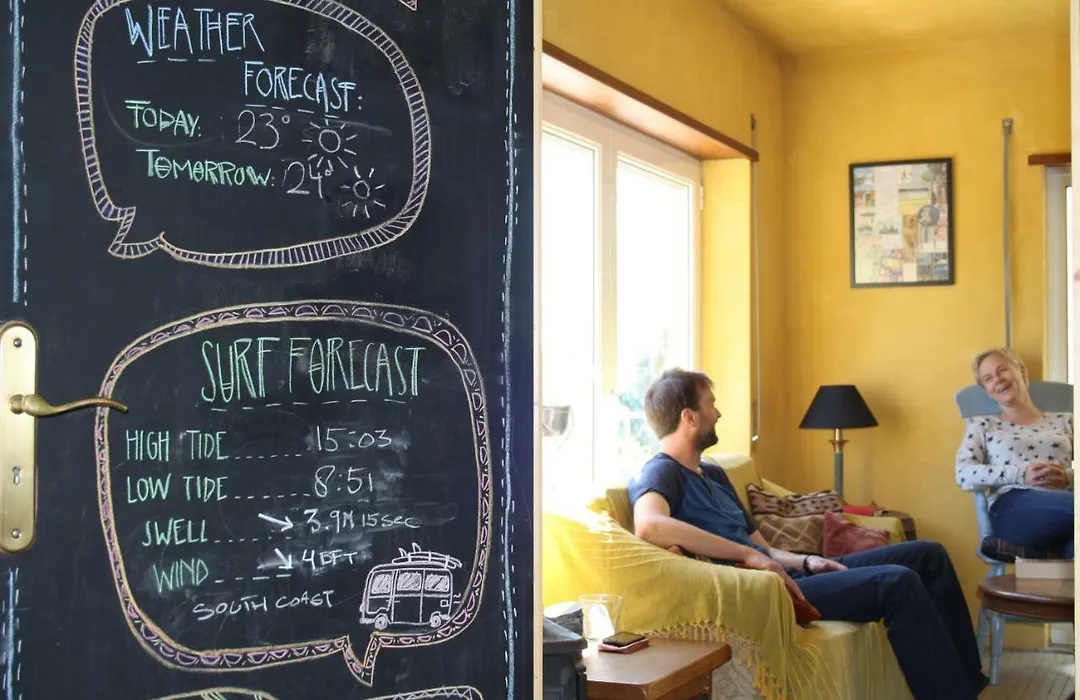 WEATHER
FORECAST:
TODAY: 23°
TOMORROW: 24°
SURF FORECAST
HIGH TIDE.......15:03
LOW TIDE.......8:51
SWELL......↘3.9M 15sec
WIND_____↘4BFT
SOUTH COAST